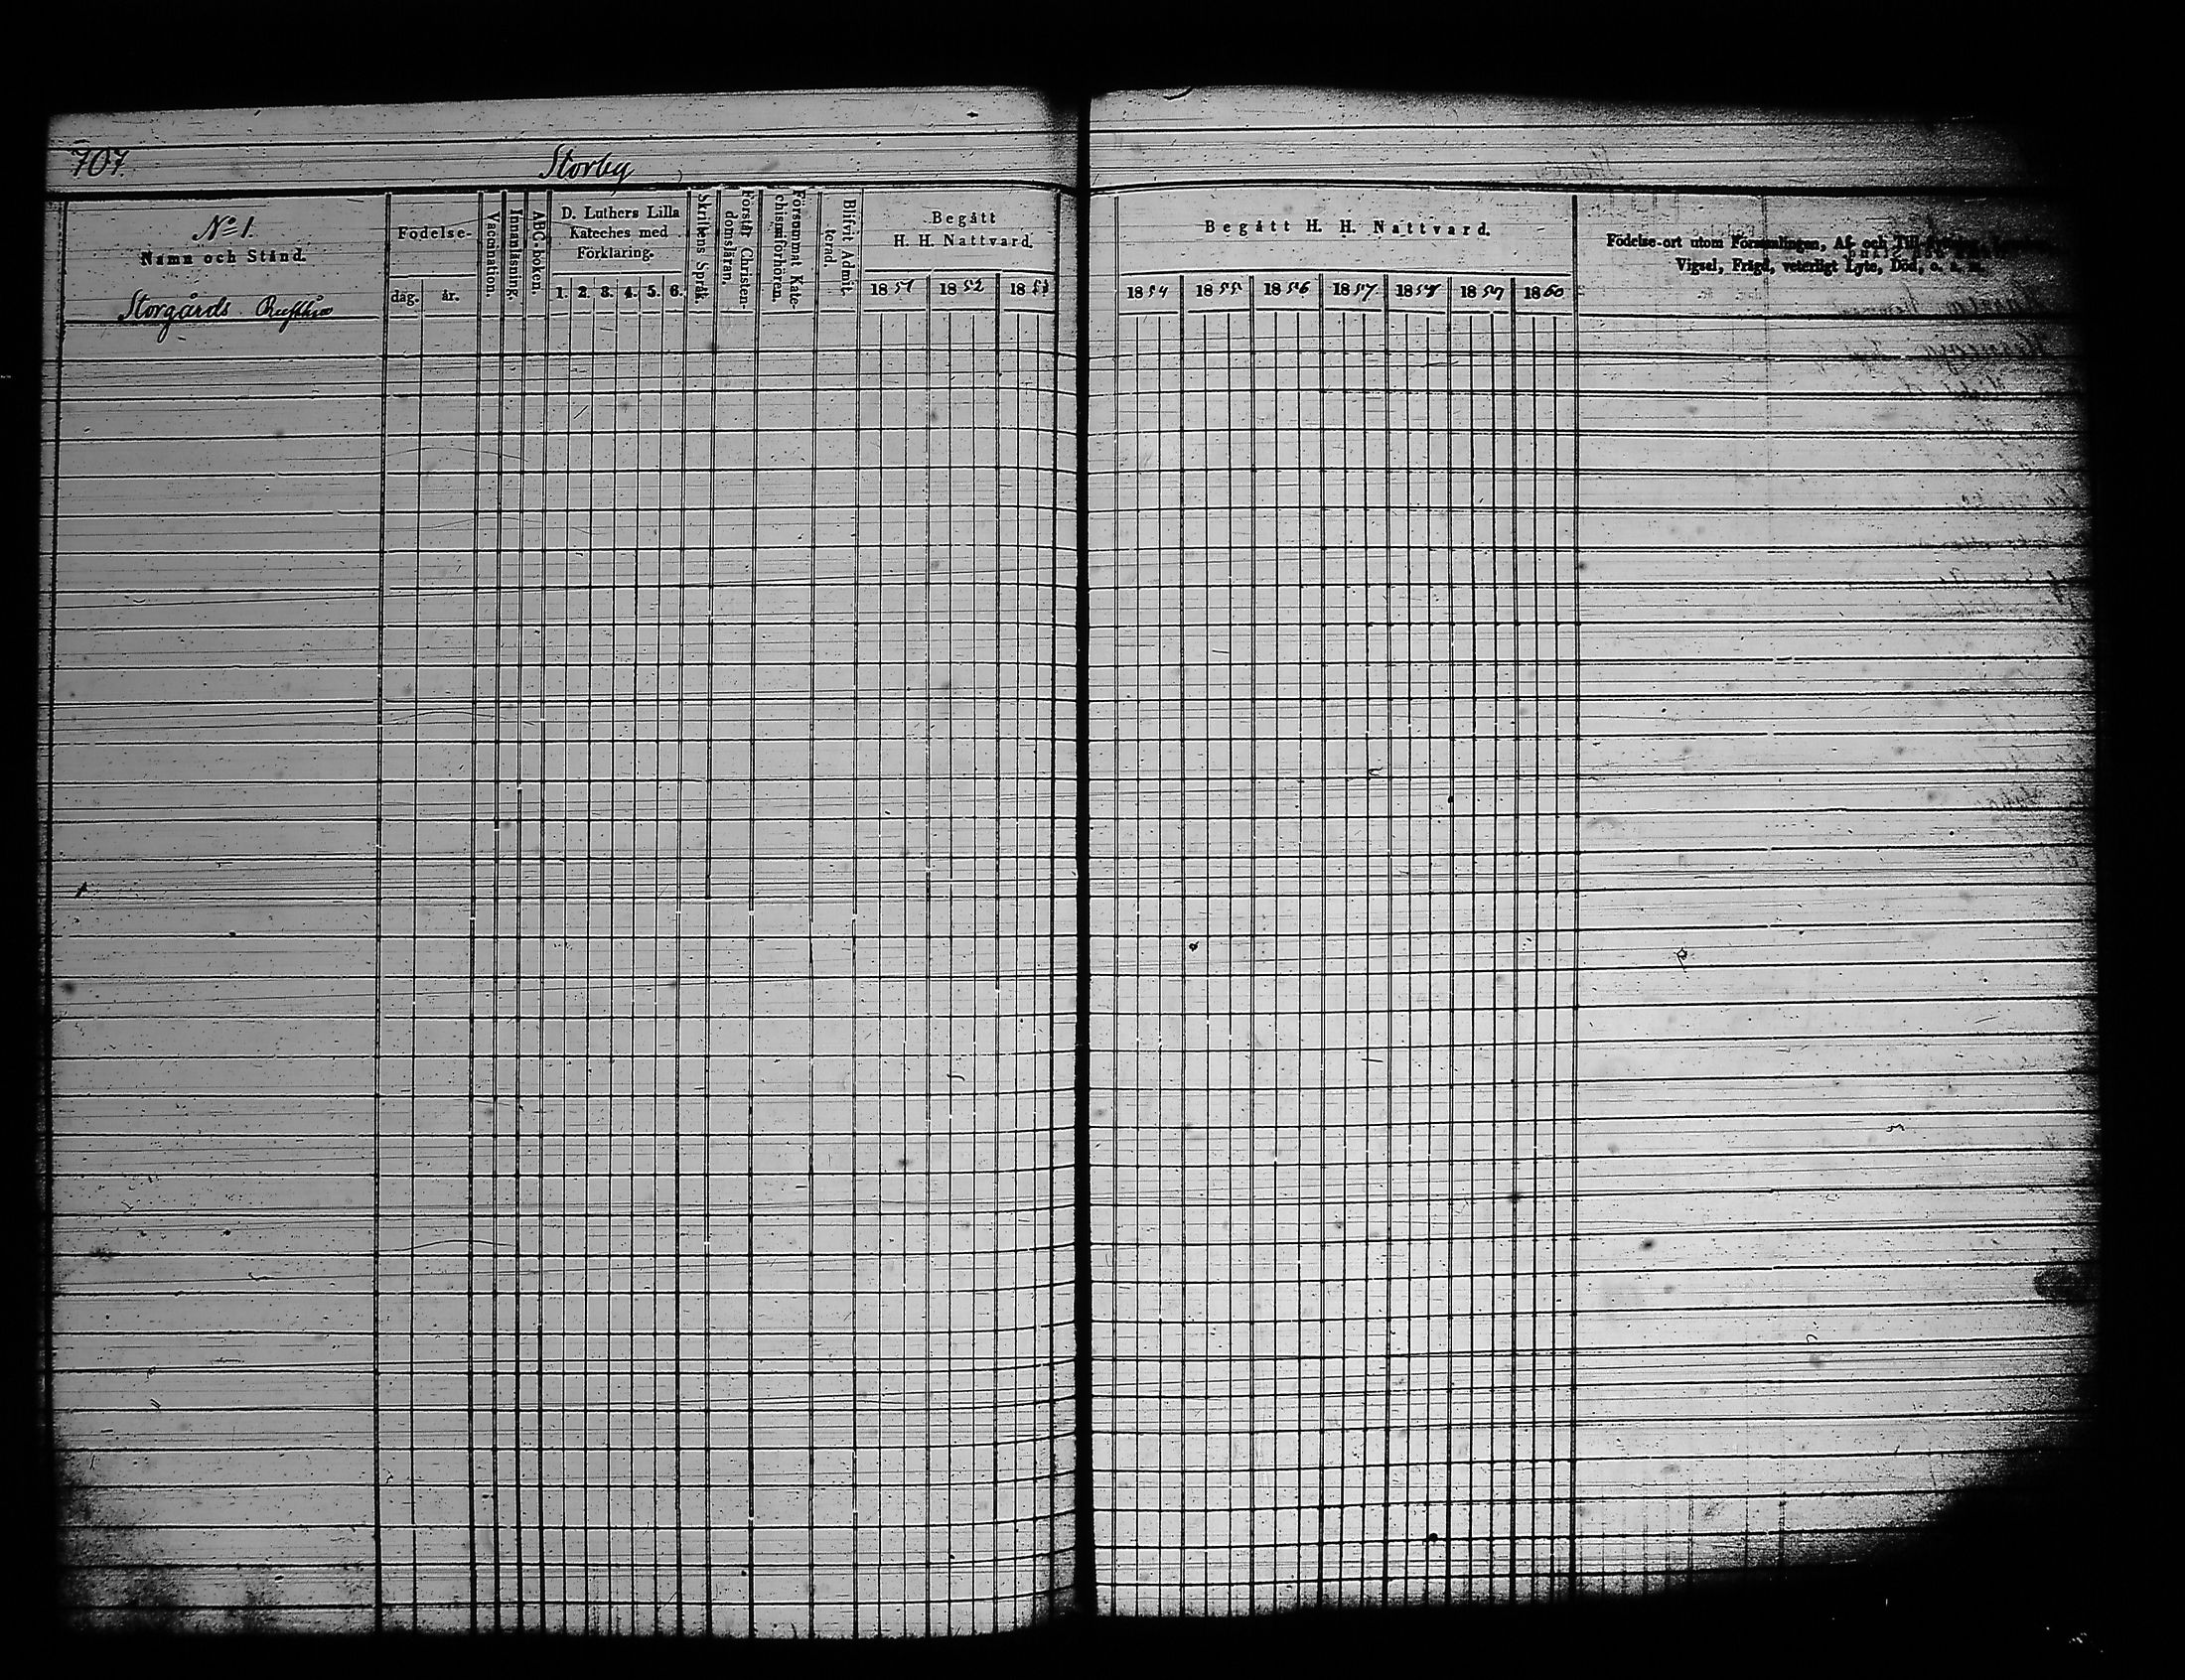 707.
Storby
No 1.
Namn och Stånd.
Storgårds
Födelse-
dag. år.
Vaccination.
Innanläsning.
ABC-boken.
D. Luthers Lilla
Kateches med
Förklaring.
1. 2. 3. 4. 5. 6.
Skriftens Språk.
Förstår Christen-
domsläran.
Försummat Kate-
chismiförhören.
Blifvit Admit-
terad.
Begått
H. H. Nattvard.
1851 1852 1853
Begått H. H. Nattvard.
1854 1855 1856 1857 1858 1859 1860
Födelse-ort utom Församlingen, Af- och Till-
Vigsel, Frägd, veterligt Lyte, Död, o. s. v.